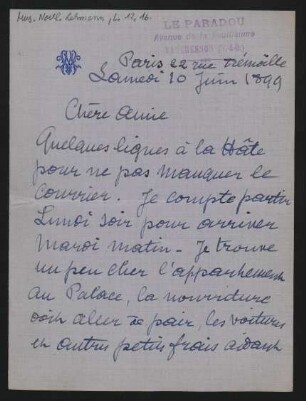 Mus. Nachl. Lermann, L. 12, 16.
LE PARADOU
Avenue de la
Paris 22 rue Trémoïlle
Samedi 10 Juin 1899
Chère amie
Quelques lignes à la Hâte
pour ne pas manquer le
courrier. Je compte partir
Lundi soir pour arriver
Mardi matin - Je trouve
un peu cher l'appartement
au Palace, la nourriture
doit aller de pair, les voitures
et autres petits frais aidant